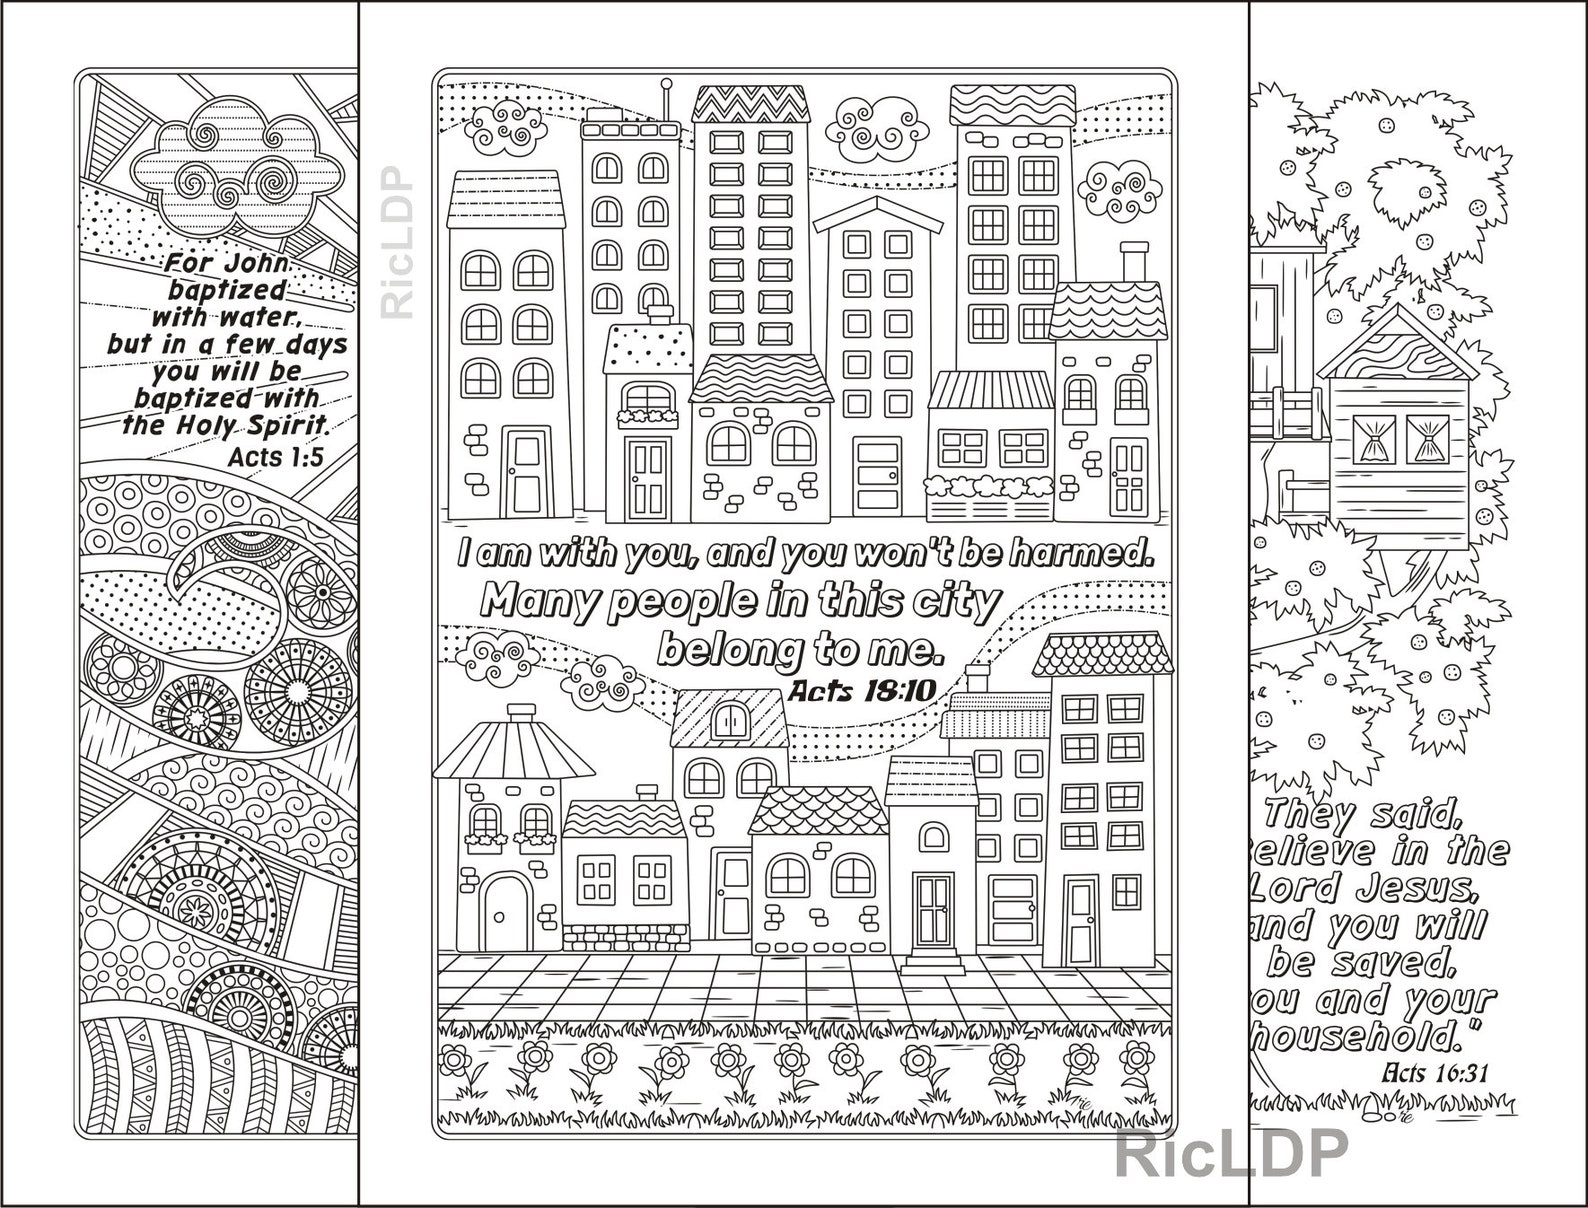 For John
baptized
with water,
but in a few days
you will be
baptized with
the Holy Spirit.
Acts 1:5
RicLDP
I am with you, and you won't be harmed.
Many people in this city
belong to me.
Acts 18:10
They said,
elieve in the
Lord Jesus,
and you will
be saved,
ou and your
household."
Acts 16:31
RicLDP